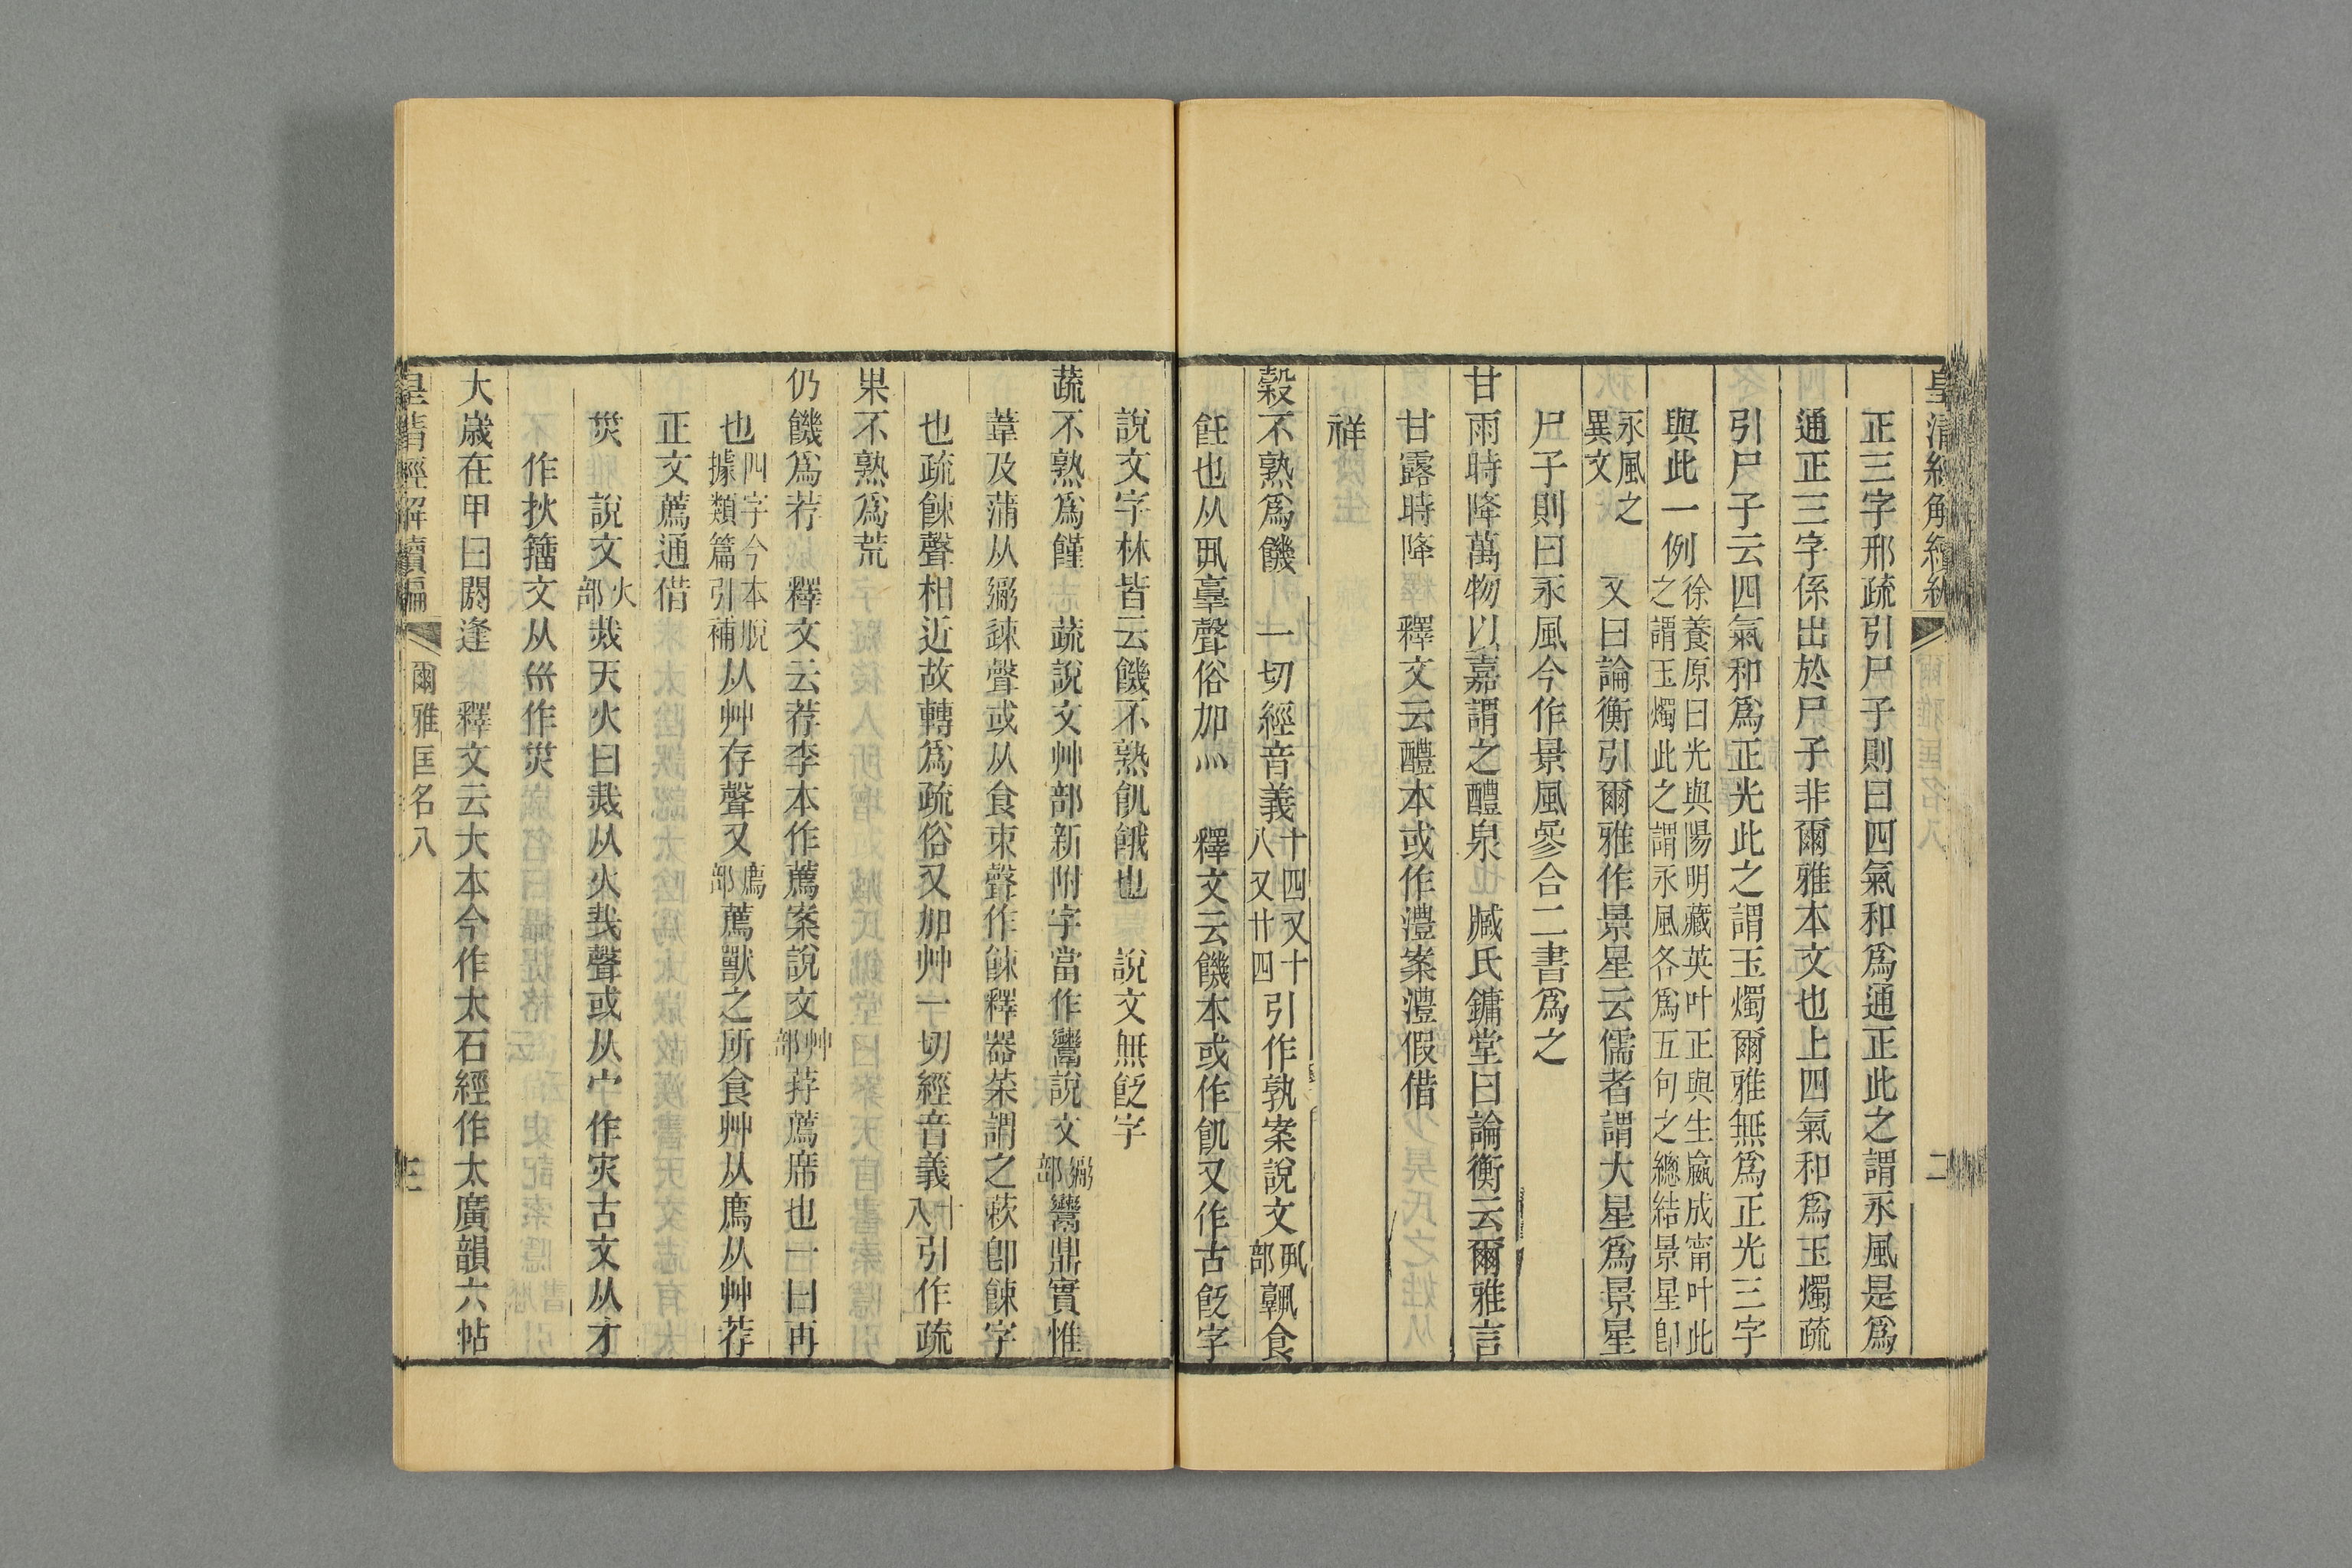 正三字邢疏引尸子則曰四氣和爲通正此之謂永風是爲
通正三字係出於尸子非爾雅本文也上四氣和爲玉燭疏
引尸子云四氣和爲正光此之謂玉燭爾雅無爲正光三字
與此一例徐養原曰光與陽明藏英叶正與生嬴成甯叶此之謂玉燭此之謂永風各爲五句之總結景星卽
永風之異文 又曰論衡引爾雅作景星云儒者謂大星爲景星
尸子則曰永風今作景風㕘合二書爲之
甘雨時降萬物以嘉謂之醴泉 臧氏鏞堂曰論衡云爾雅言
甘露時降 釋文云醴本或作澧案澧假借
祥
穀不熟爲饑 一切經音義十四又十八又廿四引作孰案說文丮部𩱏食
飪也从丮𦎫聲俗加灬 釋文云饑本或作飢又作古𩚬字
說文字林皆云饑不熟飢餓也 說文無𩚬字
蔬不熟爲饉 蔬說文艸部新附字當作鬻說文䰜部鬻鼎實惟
葦及蒲从䰜速聲或从食束聲作餗釋器菜謂之蔌卽餗字
也疏餗聲相近故轉爲疏俗又加艸一切經音義十八引作疏
果不熟爲荒
仍饑爲荐 釋文云荐李本作薦案說文艸部荐薦席也一曰再
也四字今本脫據類篇引補从艸存聲又廌部薦獸之所食艸从廌从艸荐
正文薦通借
烖 說文火部烖天火曰烖从火𢦏聲或从宀作灾古文从才
作𤆎籒文从巛作災
大歲在甲曰閼逢 釋文云大本今作太石經作太廣韻六帖
皇清經解續編 爾雅匡名八